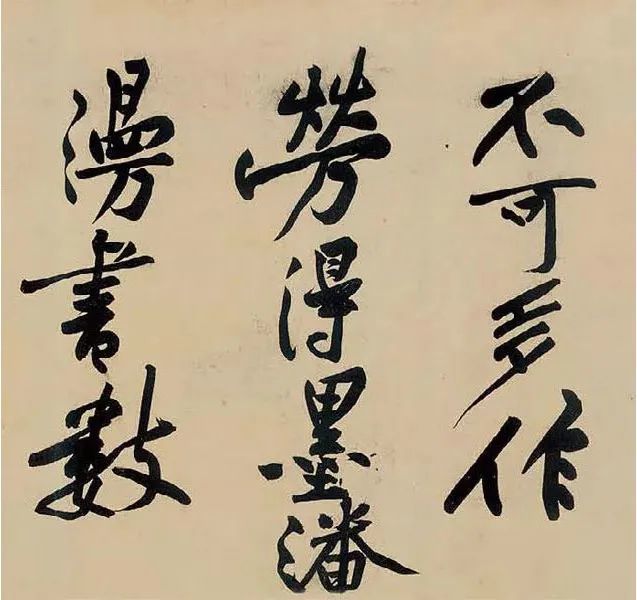 不可多作
勞得墨潘
漫書數